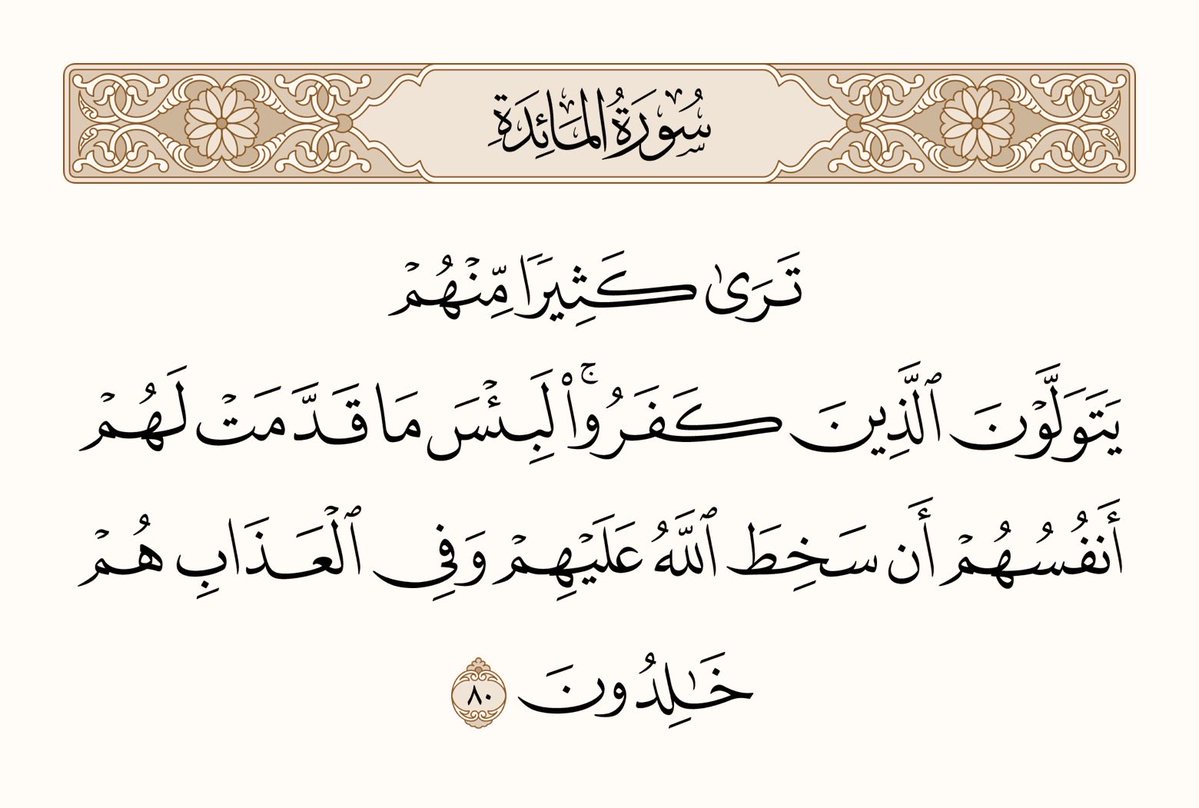 سُورَةُ المَائِدَةِ
تَرَىٰ كَثِيرًا مِّنْهُمْ
يَتَوَلَّوْنَ ٱلَّذِينَ كَفَرُوا۟ ۚ لَبِئْسَ مَا قَدَّمَتْ لَهُمْ
أَنفُسُهُمْ أَن سَخِطَ ٱللَّهُ عَلَيْهِمْ وَفِى ٱلْعَذَابِ هُمْ
خَـٰلِدُونَ ٨٠